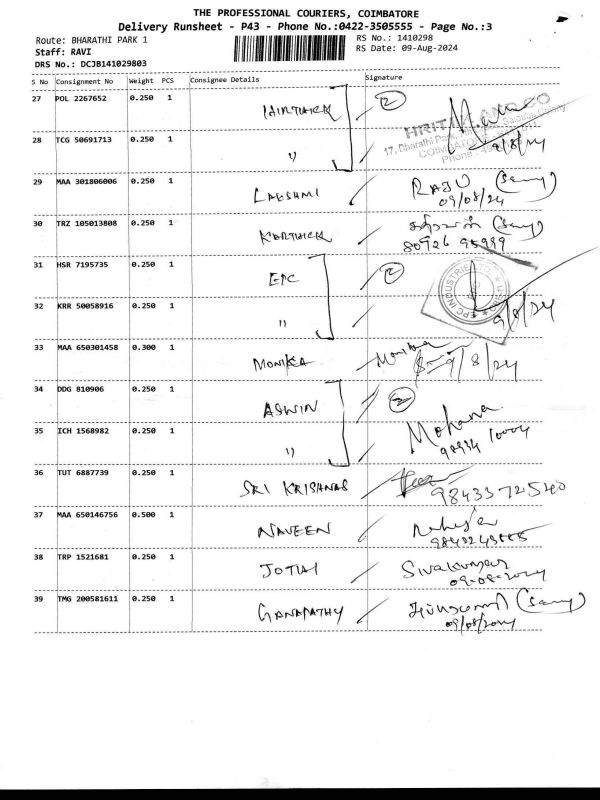 THE PROFESSIONAL COURIERS, COIMBATORE
Delivery Runsheet - P43 - Phone No.:0422-3505555 - Page No.:3
Route: BHARATHI PARK 1
RS No.: 1410298
Staff: RAVI
RS Date: 09-Aug-2024
DRS No.: DCJB141029803
S No Consignment No Weight PCS Consignee Details Signature
27 POL 2267652 0.250 1 2
28 TCG 50691713 0.250 1 "
9/8/24
29 MAA 301806006 0.250 1 LAKSHMI RAJU (Samy)
09/08/24
30 TRZ 105013808 0.250 1 KARTHICK (Samy)
80926 95999
31 HSR 7195735 0.250 1 EPC 2
EPC INDUSTRIE
32 KRR 50058916 0.250 1 " 9/8/24
33 MAA 650301458 0.300 1 MONIKA Monika
9/8/24
34 DDG 810906 0.250 1 ASWIN 2
35 ICH 1568982 0.250 1 " Mohana
98934 10004
36 TUT 6887739 0.250 1 SRI KRISHNAS
98433 72540
37 MAA 650146756 0.500 1 NAVEEN
38 TRP 1521681 0.250 1 JOTHI Sivakumar
09-08-2024
39 TMG 200581611 0.250 1 GANAPATHY (Samy)
09/08/2024